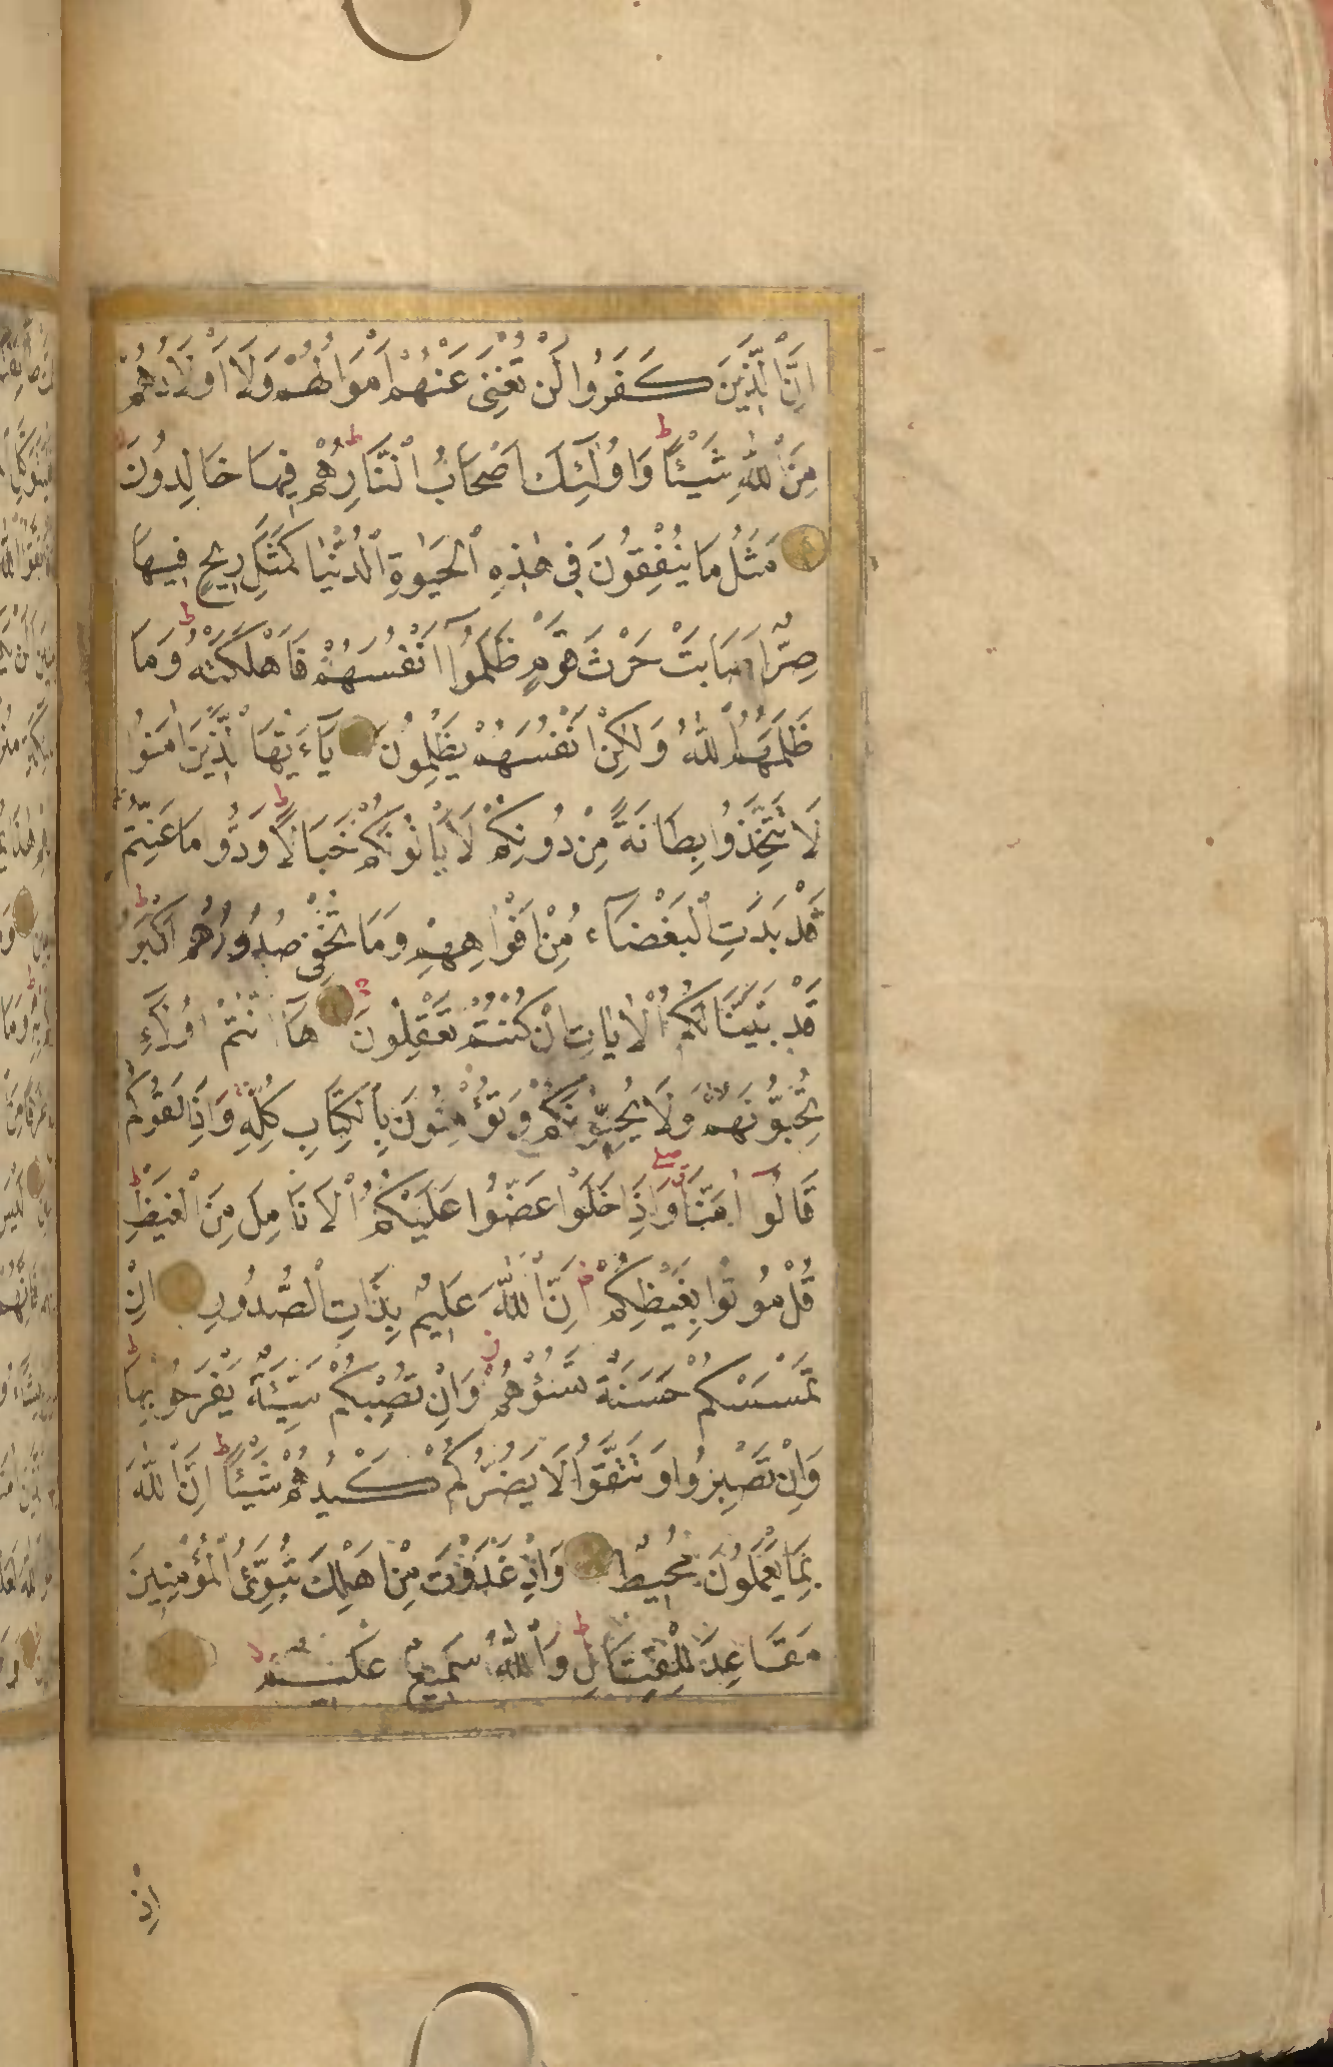 اِنَّ الَّذِينَ كَفَرُوا لَنْ تُغْنِيَ عَنْهُمْ اَمْوَالُهُمْ وَلَا اَوْلَادُهُمْ
مِنَ اللّٰهِ شَيْئًا وَاُولٰئِكَ اَصْحَابُ النَّارِ هُمْ فِيهَا خَالِدُونَ
مَثَلُ مَا يُنْفِقُونَ فِي هٰذِهِ الْحَيٰوةِ الدُّنْيَا كَمَثَلِ رِيحٍ فِيهَا
صِرٌّ اَصَابَتْ حَرْثَ قَوْمٍ ظَلَمُوا اَنْفُسَهُمْ فَاَهْلَكَتْهُ وَمَا
ظَلَمَهُمُ اللّٰهُ وَلٰكِنْ اَنْفُسَهُمْ يَظْلِمُونَ يَآءَيُّهَا الَّذِينَ اٰمَنُوا
لَا تَتَّخِذُوا بِطَانَةً مِنْ دُونِكُمْ لَا يَاْلُونَكُمْ خَبَالًا وَدُّوا مَا عَنِتُّمْ
قَدْ بَدَتِ الْبَغْضَآءُ مِنْ اَفْوَاهِهِمْ وَمَا تُخْفِي صُدُورُهُمْ اَكْبَرُ
قَدْ بَيَّنَّا لَكُمُ الْاٰيَاتِ اِنْ كُنْتُمْ تَعْقِلُونَ هَآ اَنْتُمْ اُولَآءِ
تُحِبُّونَهُمْ وَلَا يُحِبُّونَكُمْ وَتُؤْمِنُونَ بِالْكِتَابِ كُلِّهِ وَاِذَا لَقُوكُمْ
قَالُوا اٰمَنَّا وَاِذَا خَلَوْا عَضُّوا عَلَيْكُمُ الْاَنَامِلَ مِنَ الْغَيْظِ
قُلْ مُوتُوا بِغَيْظِكُمْ اِنَّ اللّٰهَ عَلِيمٌ بِذَاتِ الصُّدُورِ اِنْ
تَمْسَسْكُمْ حَسَنَةٌ تَسُؤْهُمْ وَاِنْ تُصِبْكُمْ سَيِّئَةٌ يَفْرَحُوا بِهَا
وَاِنْ تَصْبِرُوا وَتَتَّقُوا لَا يَضُرُّكُمْ كَيْدُهُمْ شَيْئًا اِنَّ اللّٰهَ
بِمَا يَعْمَلُونَ مُحِيطٌ وَاِذْ غَدَوْتَ مِنْ اَهْلِكَ تُبَوِّئُ الْمُؤْمِنِينَ
مَقَاعِدَ لِلْقِتَالِ وَاللّٰهُ سَمِيعٌ عَلِيمٌ
اِذْ